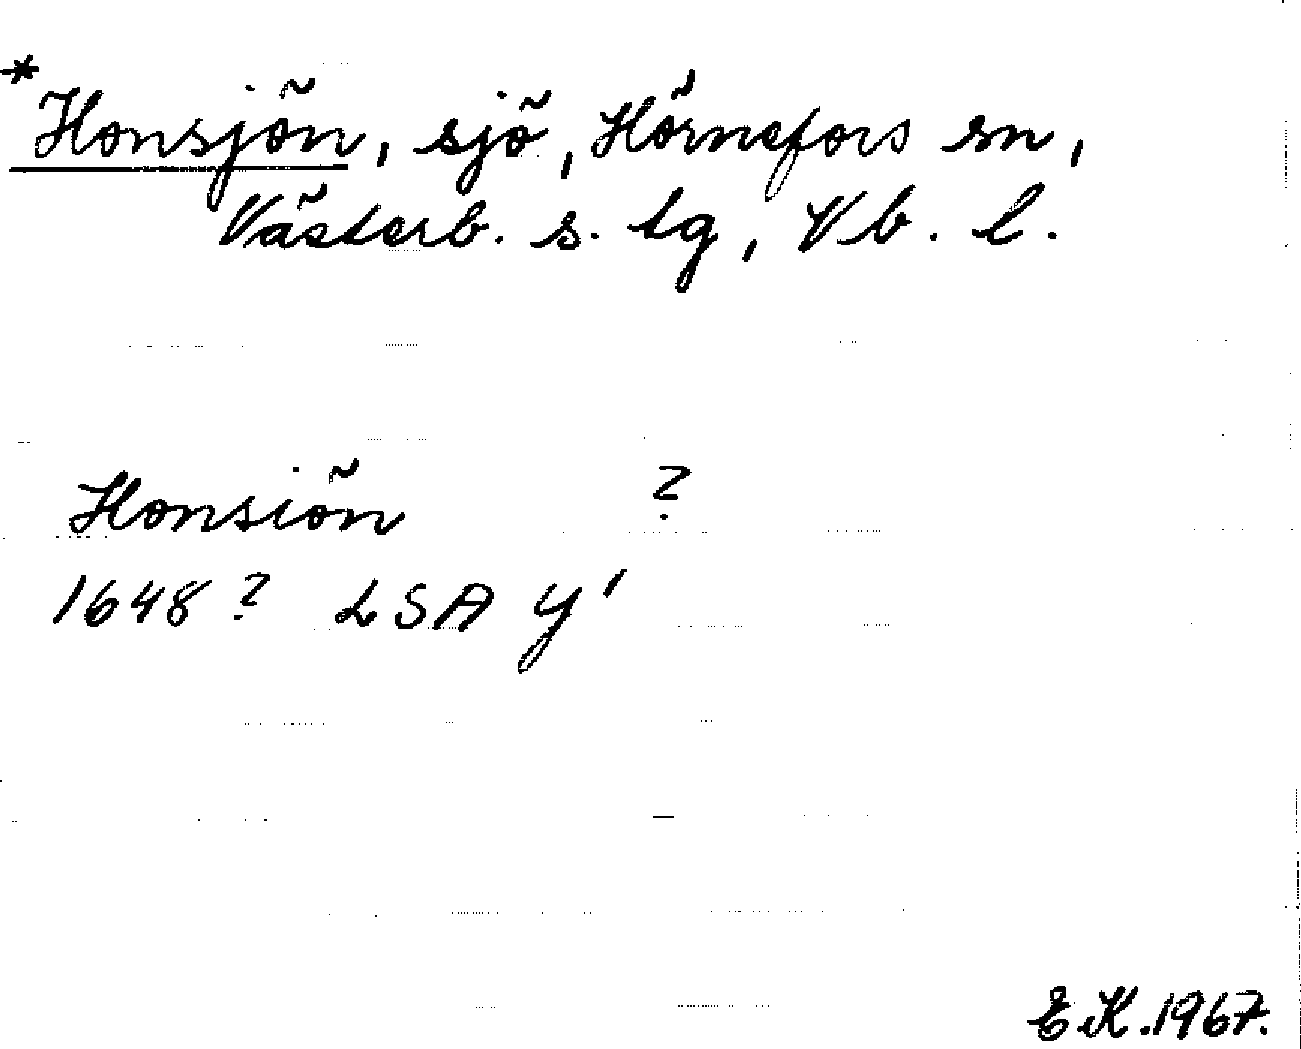 *Honsjön, sjö, Hörnefors sn,
Västerb. s. tg, Vb. l.
Honsiön ?
1648? LSA y'
E.K. 1967.